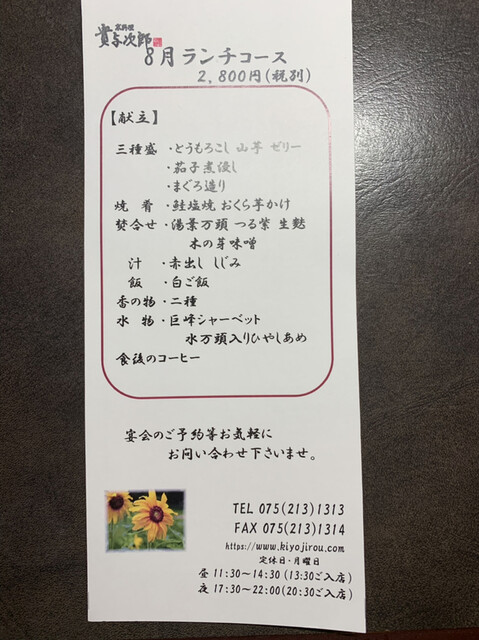 京料理
貴与次郎
8月ランチコース
2,800円(税別)
【献立】
三種盛 ・とうもろこし 山芋 ゼリー
・茄子煮浸し
・まぐろ造り
焼 肴 ・鮭塩焼 おくら芋かけ
焚合せ ・湯葉万頭 つる紫 生麩
木の芽味噌
汁 ・赤出し しじみ
飯 ・白ご飯
香の物 ・二種
水 物 ・巨峰シャーベット
水万頭入りひやしあめ
食後のコーヒー
宴会のご予約等お気軽に
お問い合わせ下さいませ。
TEL 075(213)1313
FAX 075(213)1314
https://www.kiyojirou.com
定休日・月曜日
昼 11:30~14:30 (13:30ご入店)
夜 17:30~22:00(20:30ご入店)